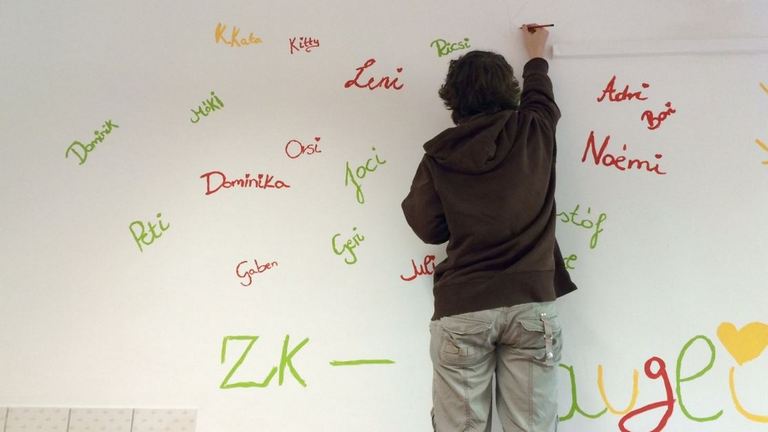 K.Kata
Kitty
Ricsi
Leni
Adri
Bori
Móki
Dominik
Orsi
Joci
Noémi
Dominika
Peti
Geri
stóf
Gaben
Juli
ZK –